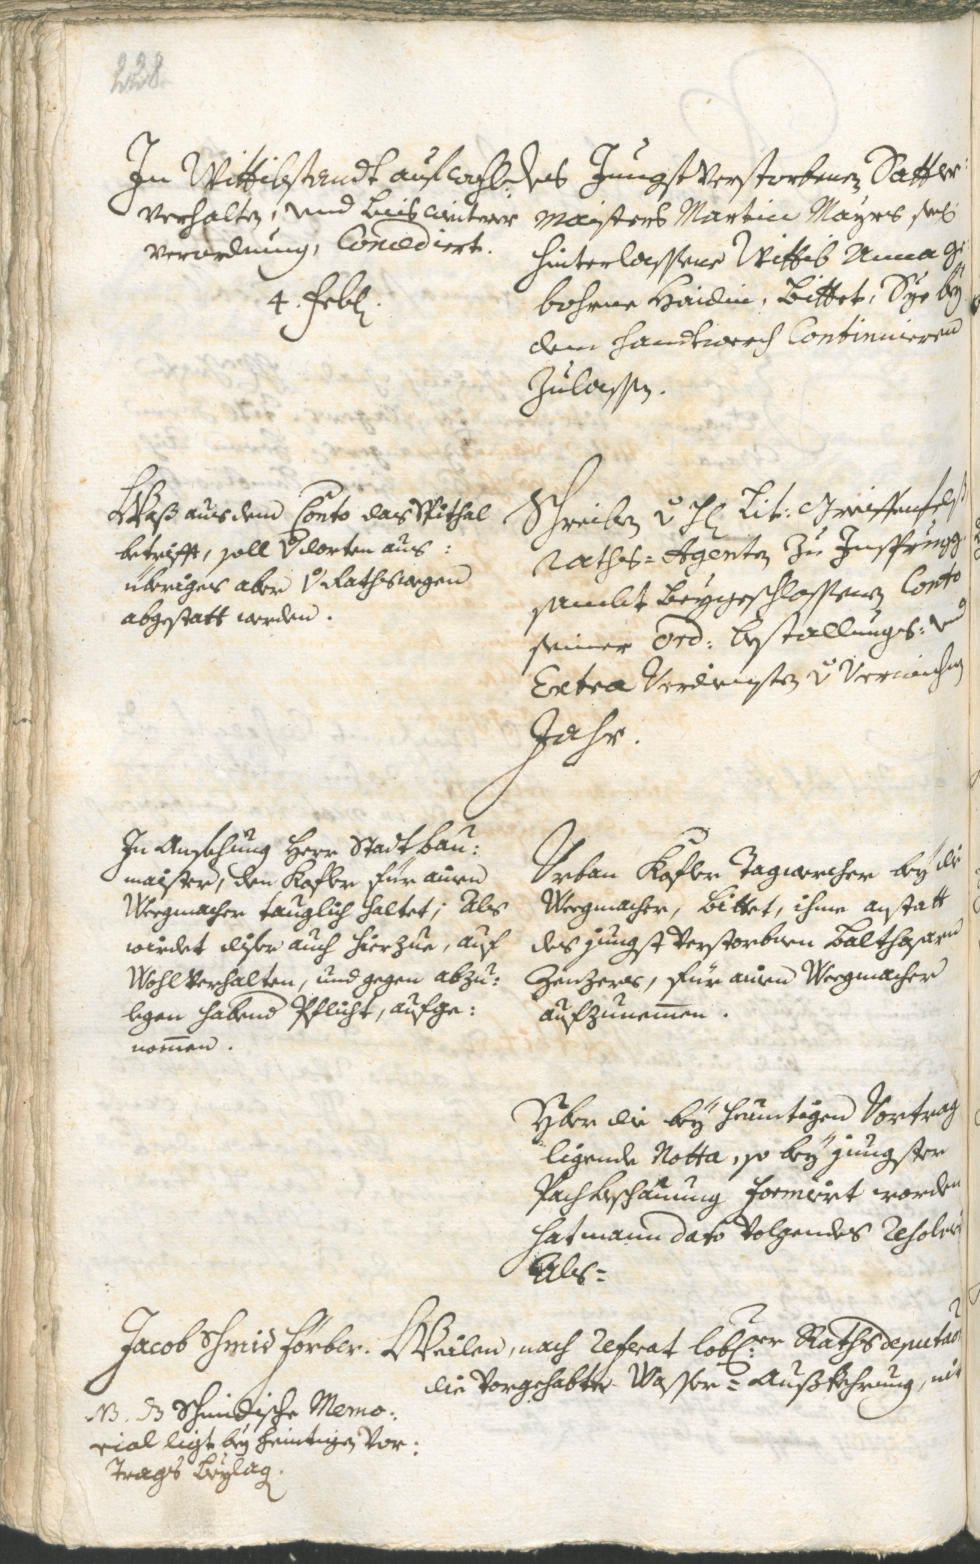 228.
In Wittibstandt auf wohl-
verhalten, und bis weitere
verordnung, Concediert.
4. Feb.
des Jungst verstorbenen Satler
maisters Martin Mayrs sel:
hinterlassene Wittib Anna ge
bohrne Haidin, Bittet, Sye bey
dem handtwerch Continuieren
zulassen.
Waß aus dem Conto das Spithal
betrifft, soll v dorten aus:
übriges aber v Rathswegen
abgestatt werden.
Schreiben v H: Tit: Greiffenfelß
Raths-Agenten zu Insprugg
sambt beygeschlossenen Conto
seiner ord: bestallungs: und
Extra Verdiensten v
Jahr.
In Ansehung Herr Stadtbau:
maister, den Kofler für ainen
Weegmacher tauglich haltet; Als
wirdet diser auch hierzue, auf
Wohlverhalten, und gegen abzu:
legen habend Pflicht, aufge:
nommen.
Urban Kofler Tagwercher bey die
Weegmacher, bittet, ihme anstatt
des jungst verstorbnen Balthasarn
Zenzers, für ainen Weegmacher
aufzunemmen.
Yber die bey heuntigen Vortrag
ligende Notta, so bey jungster
Pachbschauung formirt worden
hat mann dato volgendes Resolviert
Als:
Jacob Schmid Förber.
NB. Schmidische Memo:
rial ligt bey heintigen Vor:
trags Beylag.
Weilen, nach Referat lobl: Herr Raths deputat
die vorgehabte Wasser-Außkehrung, nit